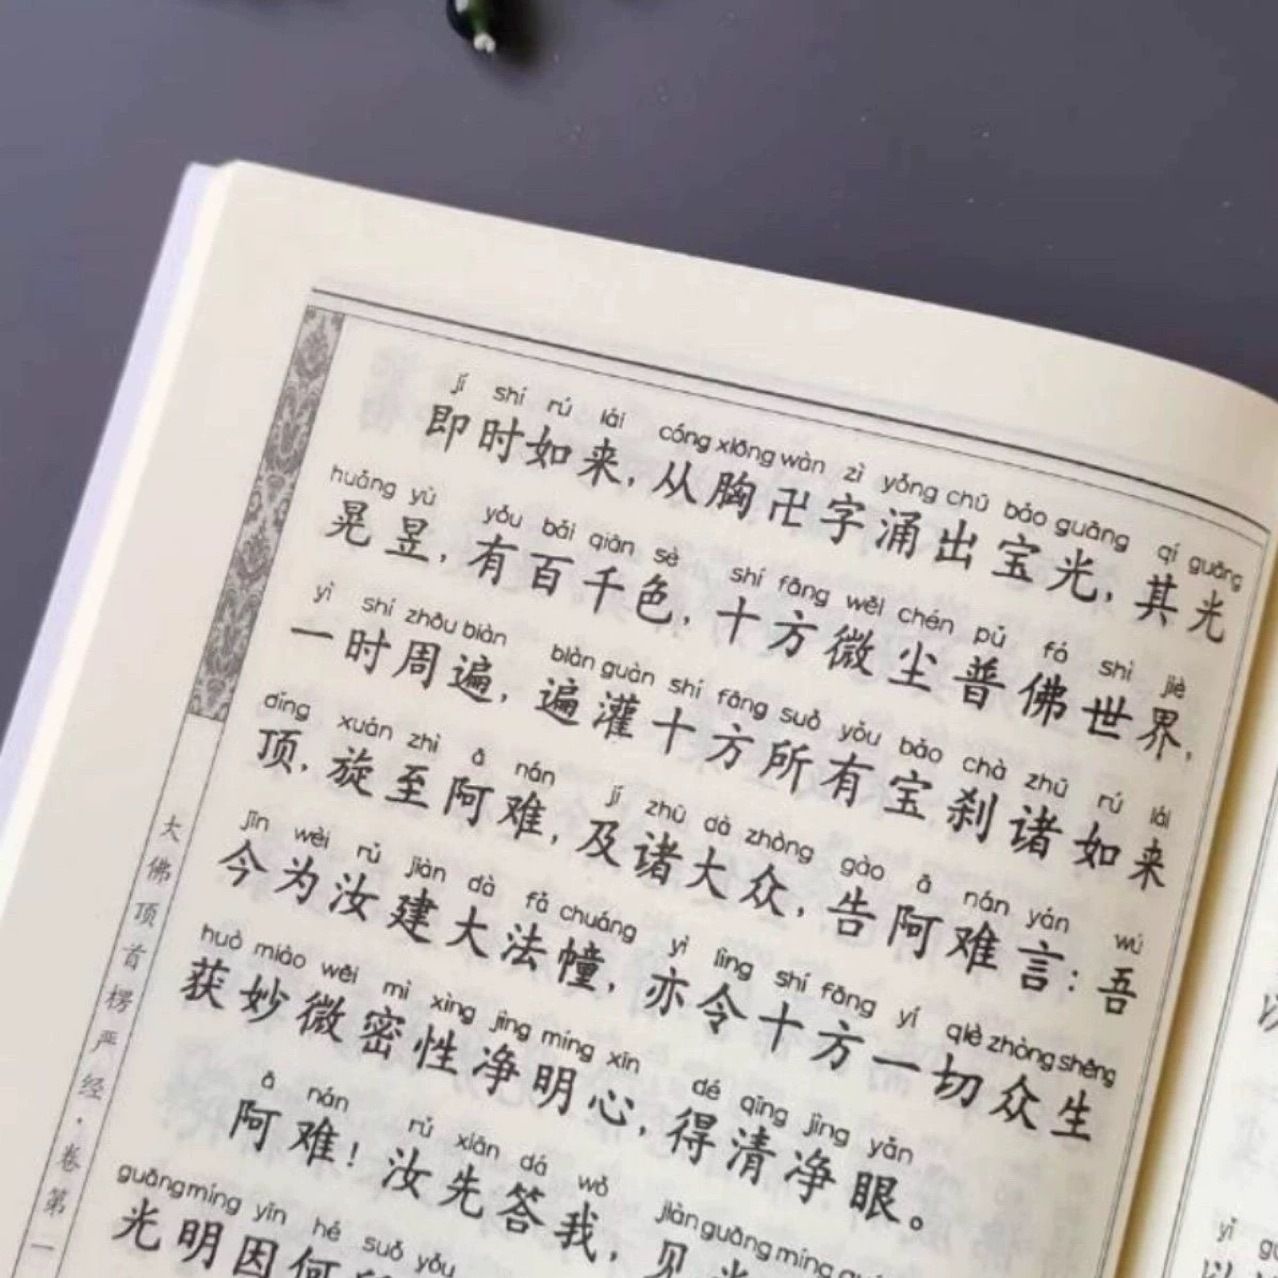 jí shí rú lái cóng xiōng wàn zì yǒng chū bǎo guāng qí guāng
即时如来，从胸卍字涌出宝光，其光
huǎng yù yǒu bǎi qiān sè shí fāng wēi chén pǔ fó shì jiè
晃昱，有百千色，十方微尘普佛世界，
yì shí zhōu biàn biàn guàn shí fāng suǒ yǒu bǎo chà zhū rú lái
一时周遍，遍灌十方所有宝刹诸如来
dǐng xuán zhì ā nán jí zhū dà zhòng gào ā nán yán wú
顶，旋至阿难，及诸大众，告阿难言：吾
jīn wèi rǔ jiàn dà fǎ chuáng yì lìng shí fāng yí qiè zhòng shēng
今为汝建大法幢，亦令十方一切众生
huò miào wēi mì xìng jìng míng xīn dé qīng jìng yǎn
获妙微密性净明心，得清净眼。
ā nán rǔ xiān dá wǒ jiàn guāng míng
阿难！汝先答我，见光
guāng míng yīn hé suǒ yǒu
光明因何所
大佛顶首楞严经·卷第一